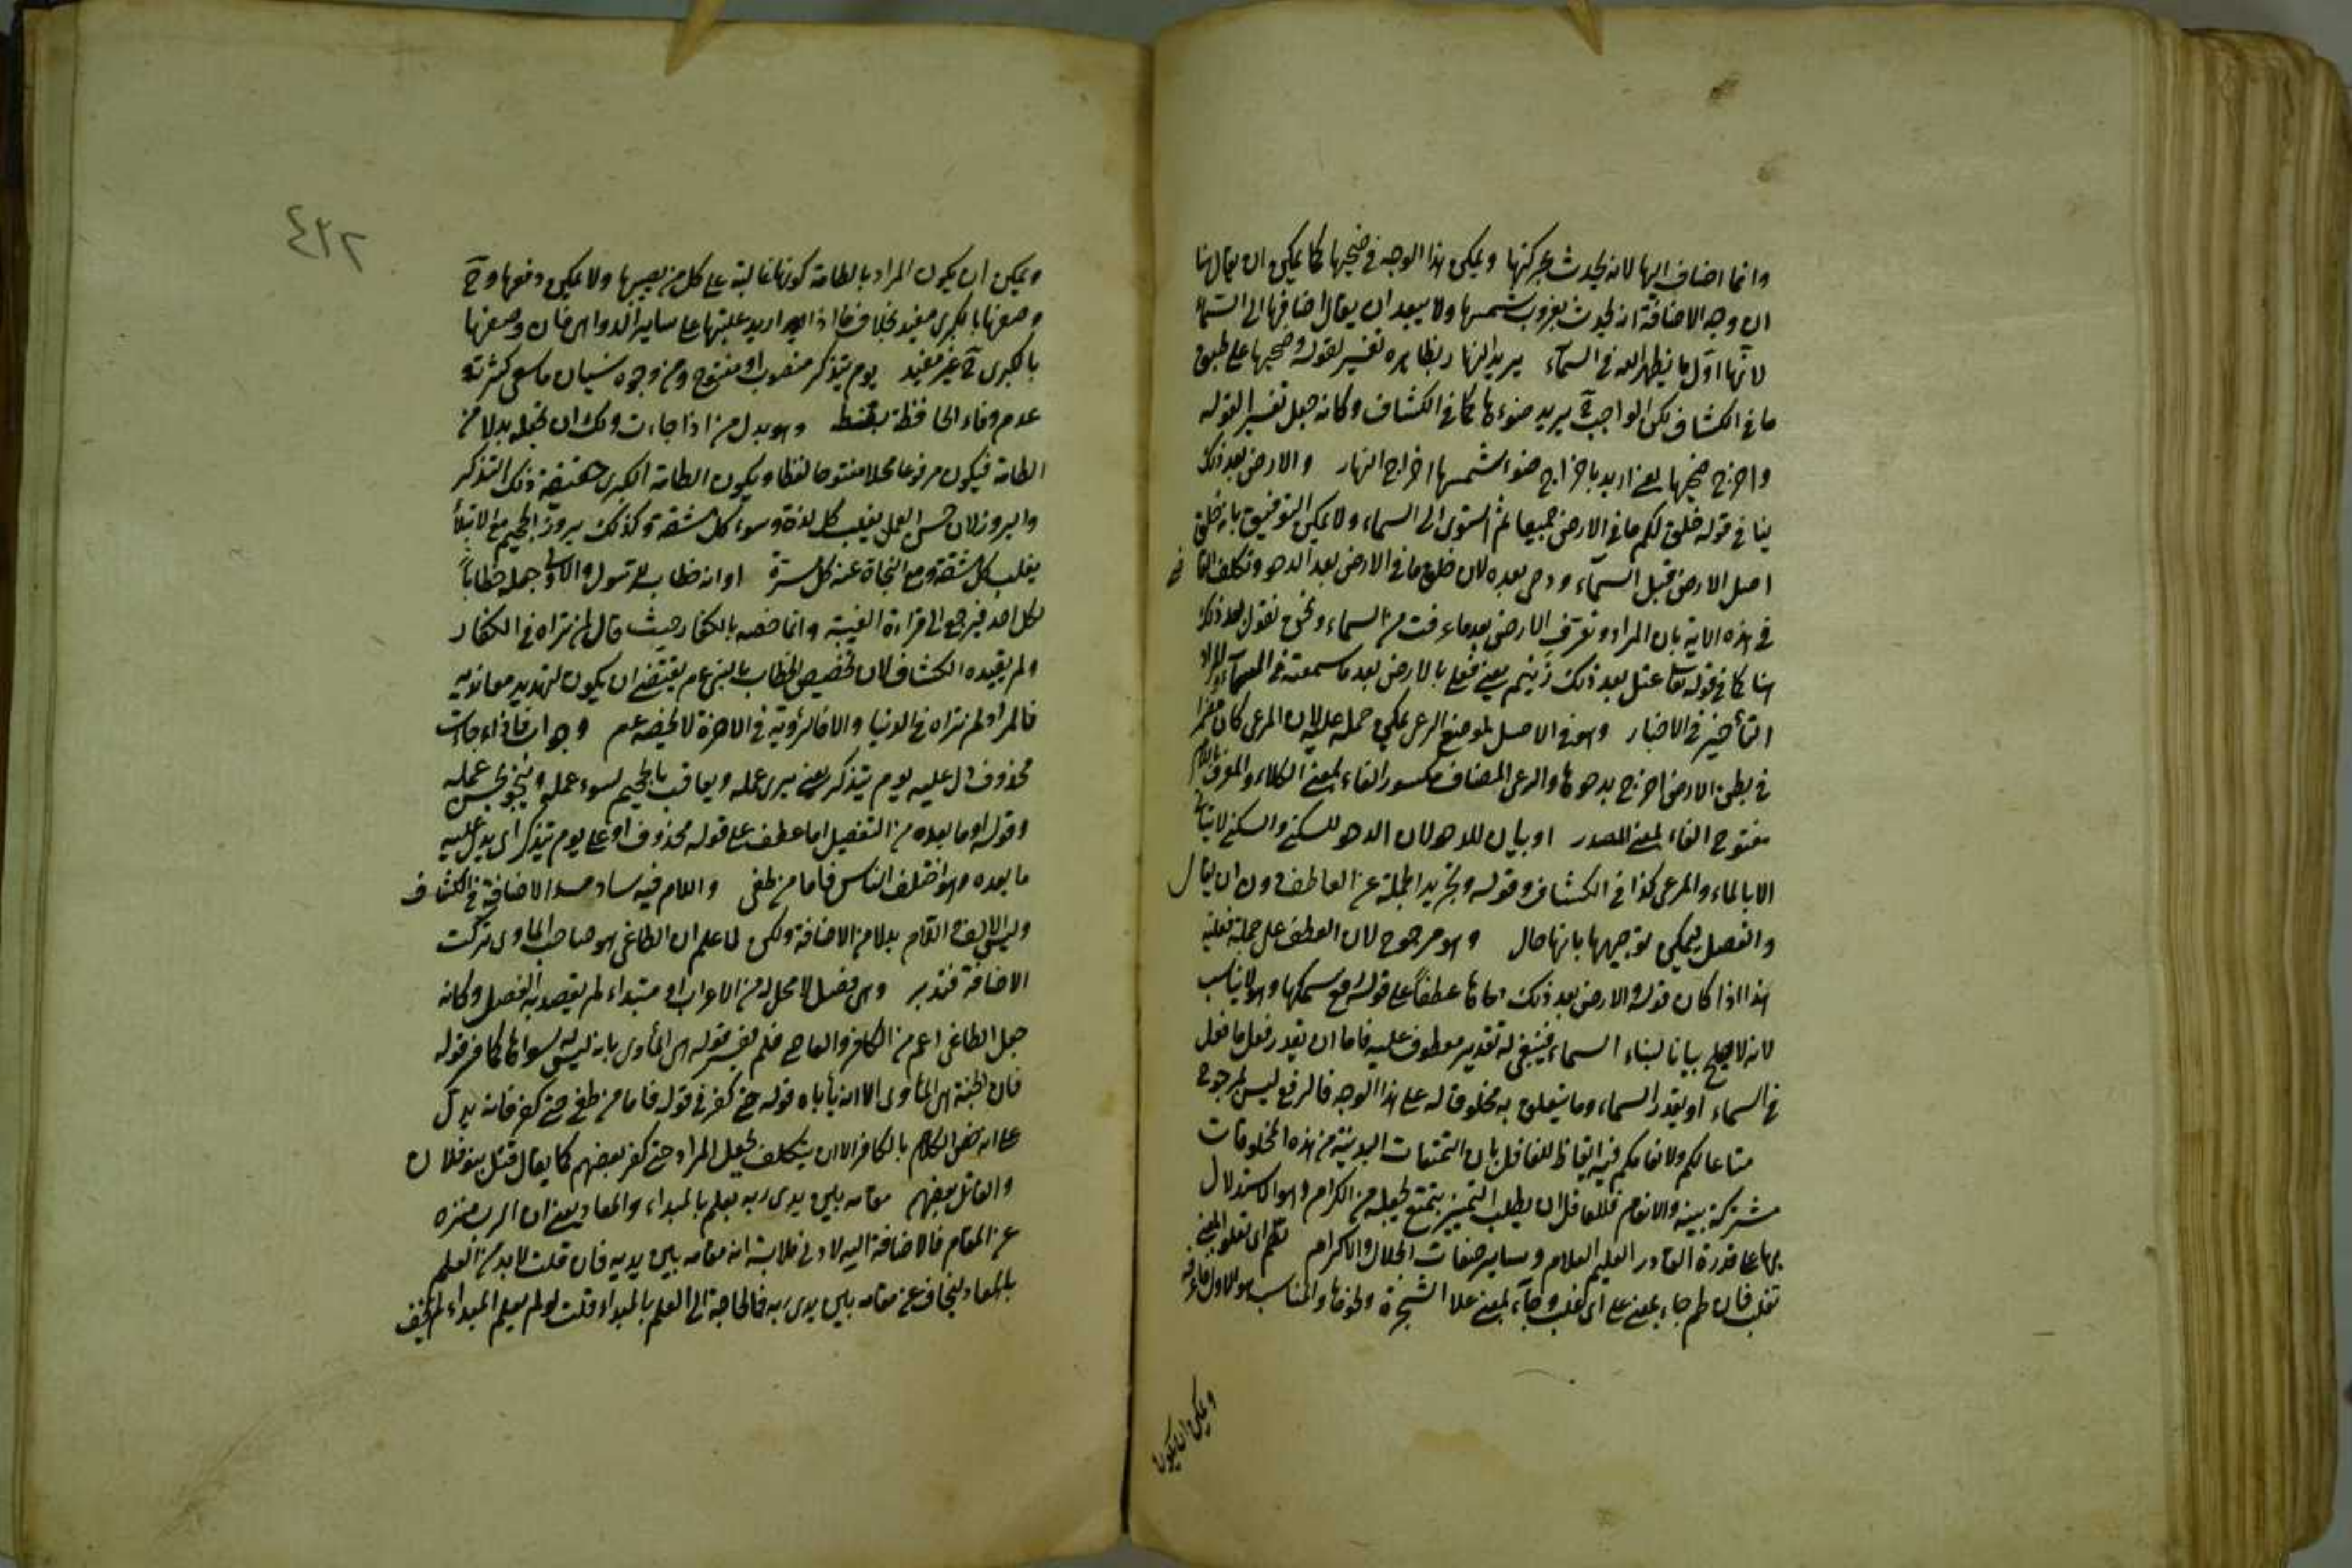 وانما اضاف اليها لانه يحدث بحركتها ويمكن هذا الوجه في ضحيها كما يمكن ان يقال هنا
ان وجه الاضافة انه يحدث بغروب شمسها ولا يبعد ان يقال اضافها الى السماء
لانها اول ما يظهر الله في السماء يريد النهار بظاهره تفسير لقوله وضحيها على طبق
ما في الكشاف لكن الواجب ح يريد ضوءها كما في الكشاف وكانه جعل تفسير القوله
واخرج ضحيها يعني اريد باخراج ضوء شمسها اخراج النهار والارض بعد ذلك
ينافي قوله خلق لكم ما في الارض جميعا ثم استوى الى السماء ولا يمكن التوفيق بانه خلق
اصل الارض قبل السماء ودحى بعده لان خلق ما في الارض بعد الدحو وتكلف
في هذه الاية بان المراد وتعرف الارض بعد ما عرفت من السماء ونحن نقول بعد ذلك
هنا كما في قوله تعالى عتل بعد ذلك زنيم يعني فعل بالارض بعد ما سمعته في السماء والمراد
التأخير في الاخبار وهو في الاصل لموضع الرعي يمكن حمله عليه لان المرعى كان
في بطن الارض اخرج بدحوها والرعي المضاف مكسور الفاء بمعنى الكلاء والمعرف باللام
مفتوح الفاء بمعنى المصدر او بيان للدحو لان الدحو للسكنى والسكنى لا يتأتى
الا بالماء والمرعى كذا في الكشاف وقوله وتجريد الجملة عن العاطف دون ان يقال
والفصل يمكن توجيهها بانها حال وهو مرجوح لان العطف على جملة فعلية
هذا اذا كان قوله والارض بعد ذلك دحاها عطفاً على قوله رفع سمكها وهو لا يناسب
لانه لا يصلح بيانا لبناء السماء فينبغي له تقدير معطوف عليه فاما ان يقدر فعل ما فعل
في السماء او يقدر السماء وما يتعلق به مخلوق له على هذا الوجه فالرفع ليس بمرجوح
متاعا لكم ولانعامكم فيه ايقاظ للغافل بان التمتعات البدنية من هذه المخلوقات
مشتركة بينه والانعام فللعاقل ان يطلب التميز بتمتع يجعله من الكرام وهو الاستدلال
بها على قدرة القادر العليم العلام وساير صفات الجلال والاكرام تطم اى تعلو
تغلب فان طم جاء بمعنى على اى غلب وجاء بمعنى علا الشجرة ونحوها والمناسب هو الاول
ويمكن ان يكون
٤٣٢
ويمكن ان يكون المراد بالطامة كونها غالبة على كل من يصيبها ولا يمكن دفعها وح
وصفها بالكبرى مفيد بخلاف ما اذا اريد غلبتها على ساير الدواهي فان وصفها
بالكبرى ح غير مفيد يوم يتذكر منصوب او مفتوح ومن وجوه نسيان ما سعى كثرته
عدم وفاء الحافظة وهو بدل من اذا جاءت ولك ان تجعله بدلا من
الطامة فيكون مرفوعا محلا مفتوحا لفظا ويكون الطامة الكبرى حقيقة ذلك التذكر
والبروز لان حسن العمل يغلب كل لذة وسوءه كل مشقة وكذلك بروز الجحيم مع الابتلاء
يغلب كل مشقة ومع النجاة عنه كل مسرة او انه خطاب للرسول والاولى جعله خطاباً
لكل احد فيرجع الى قراءة الغيبة وانما خصه بالكفار حيث قال لمن تراه في الكفار
ولم يقيده الكشاف لان تخصيص الخطاب بالنبي عم يقتضي ان يكون لتهديد معانديه
فالمراد لمن تراه في الدنيا والا فالرؤية في الاخرة لا تخصه عم وجواب فاذا جاءت
محذوف دل عليه يوم يتذكر يعني يرى عمله ويعاقب بالجحيم لسوء عمله وينجو بحسن عمله
وقوله وما بعده من التفصيل اما عطف على قوله محذوف او على يوم يتذكر اى يدل عليه
ما بعده وهو اختلف الناس فاما من طغى واللام فيه ساد مسد الاضافة في الكشاف
وليس الالف واللام بدلا من الاضافة ولكن لما علم ان الطاغي هو صاحب المأوى تركت
الاضافة فتدبر وهى فصل لا محل له من الاعراب او مبتداء لم يقصد به الفصل وكانه
جعل الطاغي اعم من الكافر والعاصي فلم يفسر قوله هى المأوى بانه ليس له سواها كما فسر قوله
فان الجنة هى المأوى الا انه يأباه قوله حتى كفر في قوله فاما من طغى حتى كفر فانه يدل
على انه خص الكلام بالكافر الا ان يتكلف بجعل المراد حتى كفر بعضهم كما يقال قتل بنو فلان
والقاتل بعضهم مقامه بين يدى ربه لعلمه بالمبداء والمعاد يعني ان الرب منزه
عن المقام فالاضافة اليه لادنى ملابسة انه مقامه بين يديه فان قلت لا بد من العلم
بالمعاد ليخاف عن مقامه بين يدى ربه فما الحاجة الى العلم بالمبداء قلت لو لم يعلم المبداء لم يخف